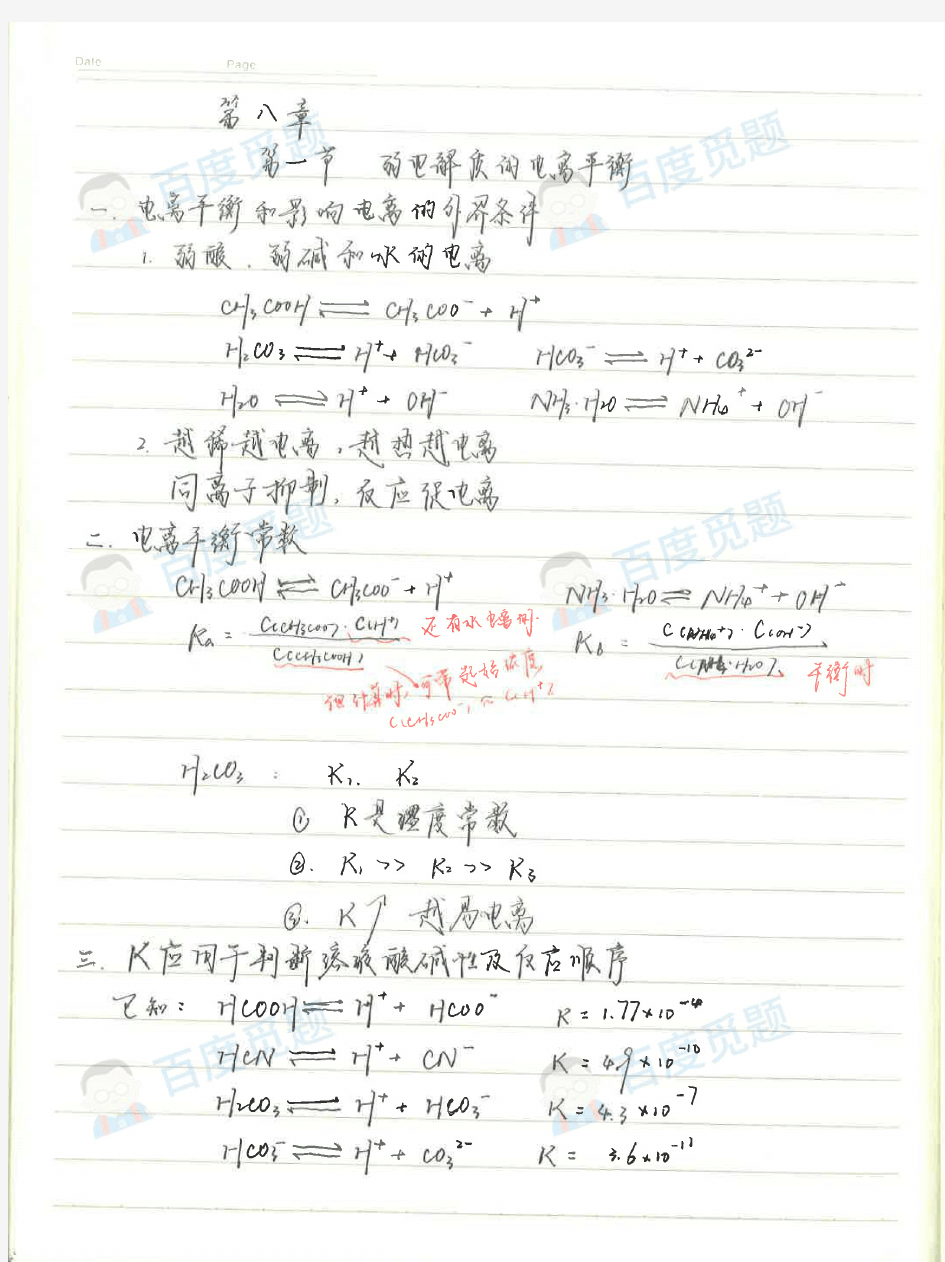 Date Page
第八章
第一节 弱电解质的电离平衡
一. 电离平衡和影响电离的外界条件
1. 弱酸、弱碱和水的电离
CH₃COOH ⇌ CH₃COO⁻ + H⁺
H₂CO₃ ⇌ H⁺ + HCO₃⁻ HCO₃⁻ ⇌ H⁺ + CO₃²⁻
H₂O ⇌ H⁺ + OH⁻ NH₃·H₂O ⇌ NH₄⁺ + OH⁻
2. 越稀越电离,越热越电离
同离子抑制,反应促电离
二. 电离平衡常数
CH₃COOH ⇌ CH₃COO⁻ + H⁺ NH₃·H₂O ⇌ NH₄⁺ + OH⁻
Ka = C(CH₃COO⁻)·C(H⁺) / C(CH₃COOH) 还有水电离的. Kb = C(NH₄⁺)·C(OH⁻) / C(NH₃·H₂O) 平衡时
但计算时,可带起始浓度
C(CH₃COO⁻) ≈ C(H⁺)
H₂CO₃ : K₁. K₂
① K是温度常数
②. K₁ >> K₂ >> K₃
③. K↑ 越易电离
三. K应用于判断溶液酸碱性及反应顺序
已知: HCOOH ⇌ H⁺ + HCOO⁻ K = 1.77×10⁻⁴
HCN ⇌ H⁺ + CN⁻ K = 4.9×10⁻¹⁰
H₂CO₃ ⇌ H⁺ + HCO₃⁻ K = 4.3×10⁻⁷
HCO₃⁻ ⇌ H⁺ + CO₃²⁻ K = 5.6×10⁻¹¹
百度觅题
百度觅题
百度觅题
百度觅题
百度觅题
百度觅题